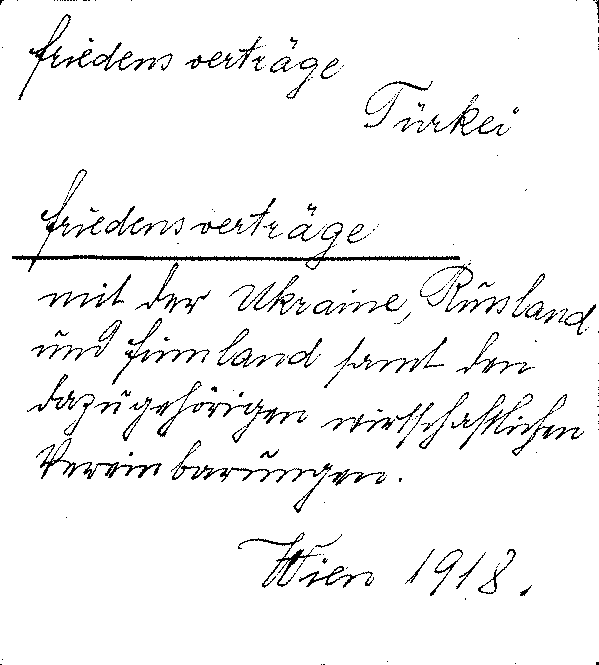 Friedensverträge
Türkei
Friedensverträge
mit der Ukraine, Russland
und Finnland samt den
dazugehörigen wirtschaftlichen
Vereinbarungen.
Wien 1918.